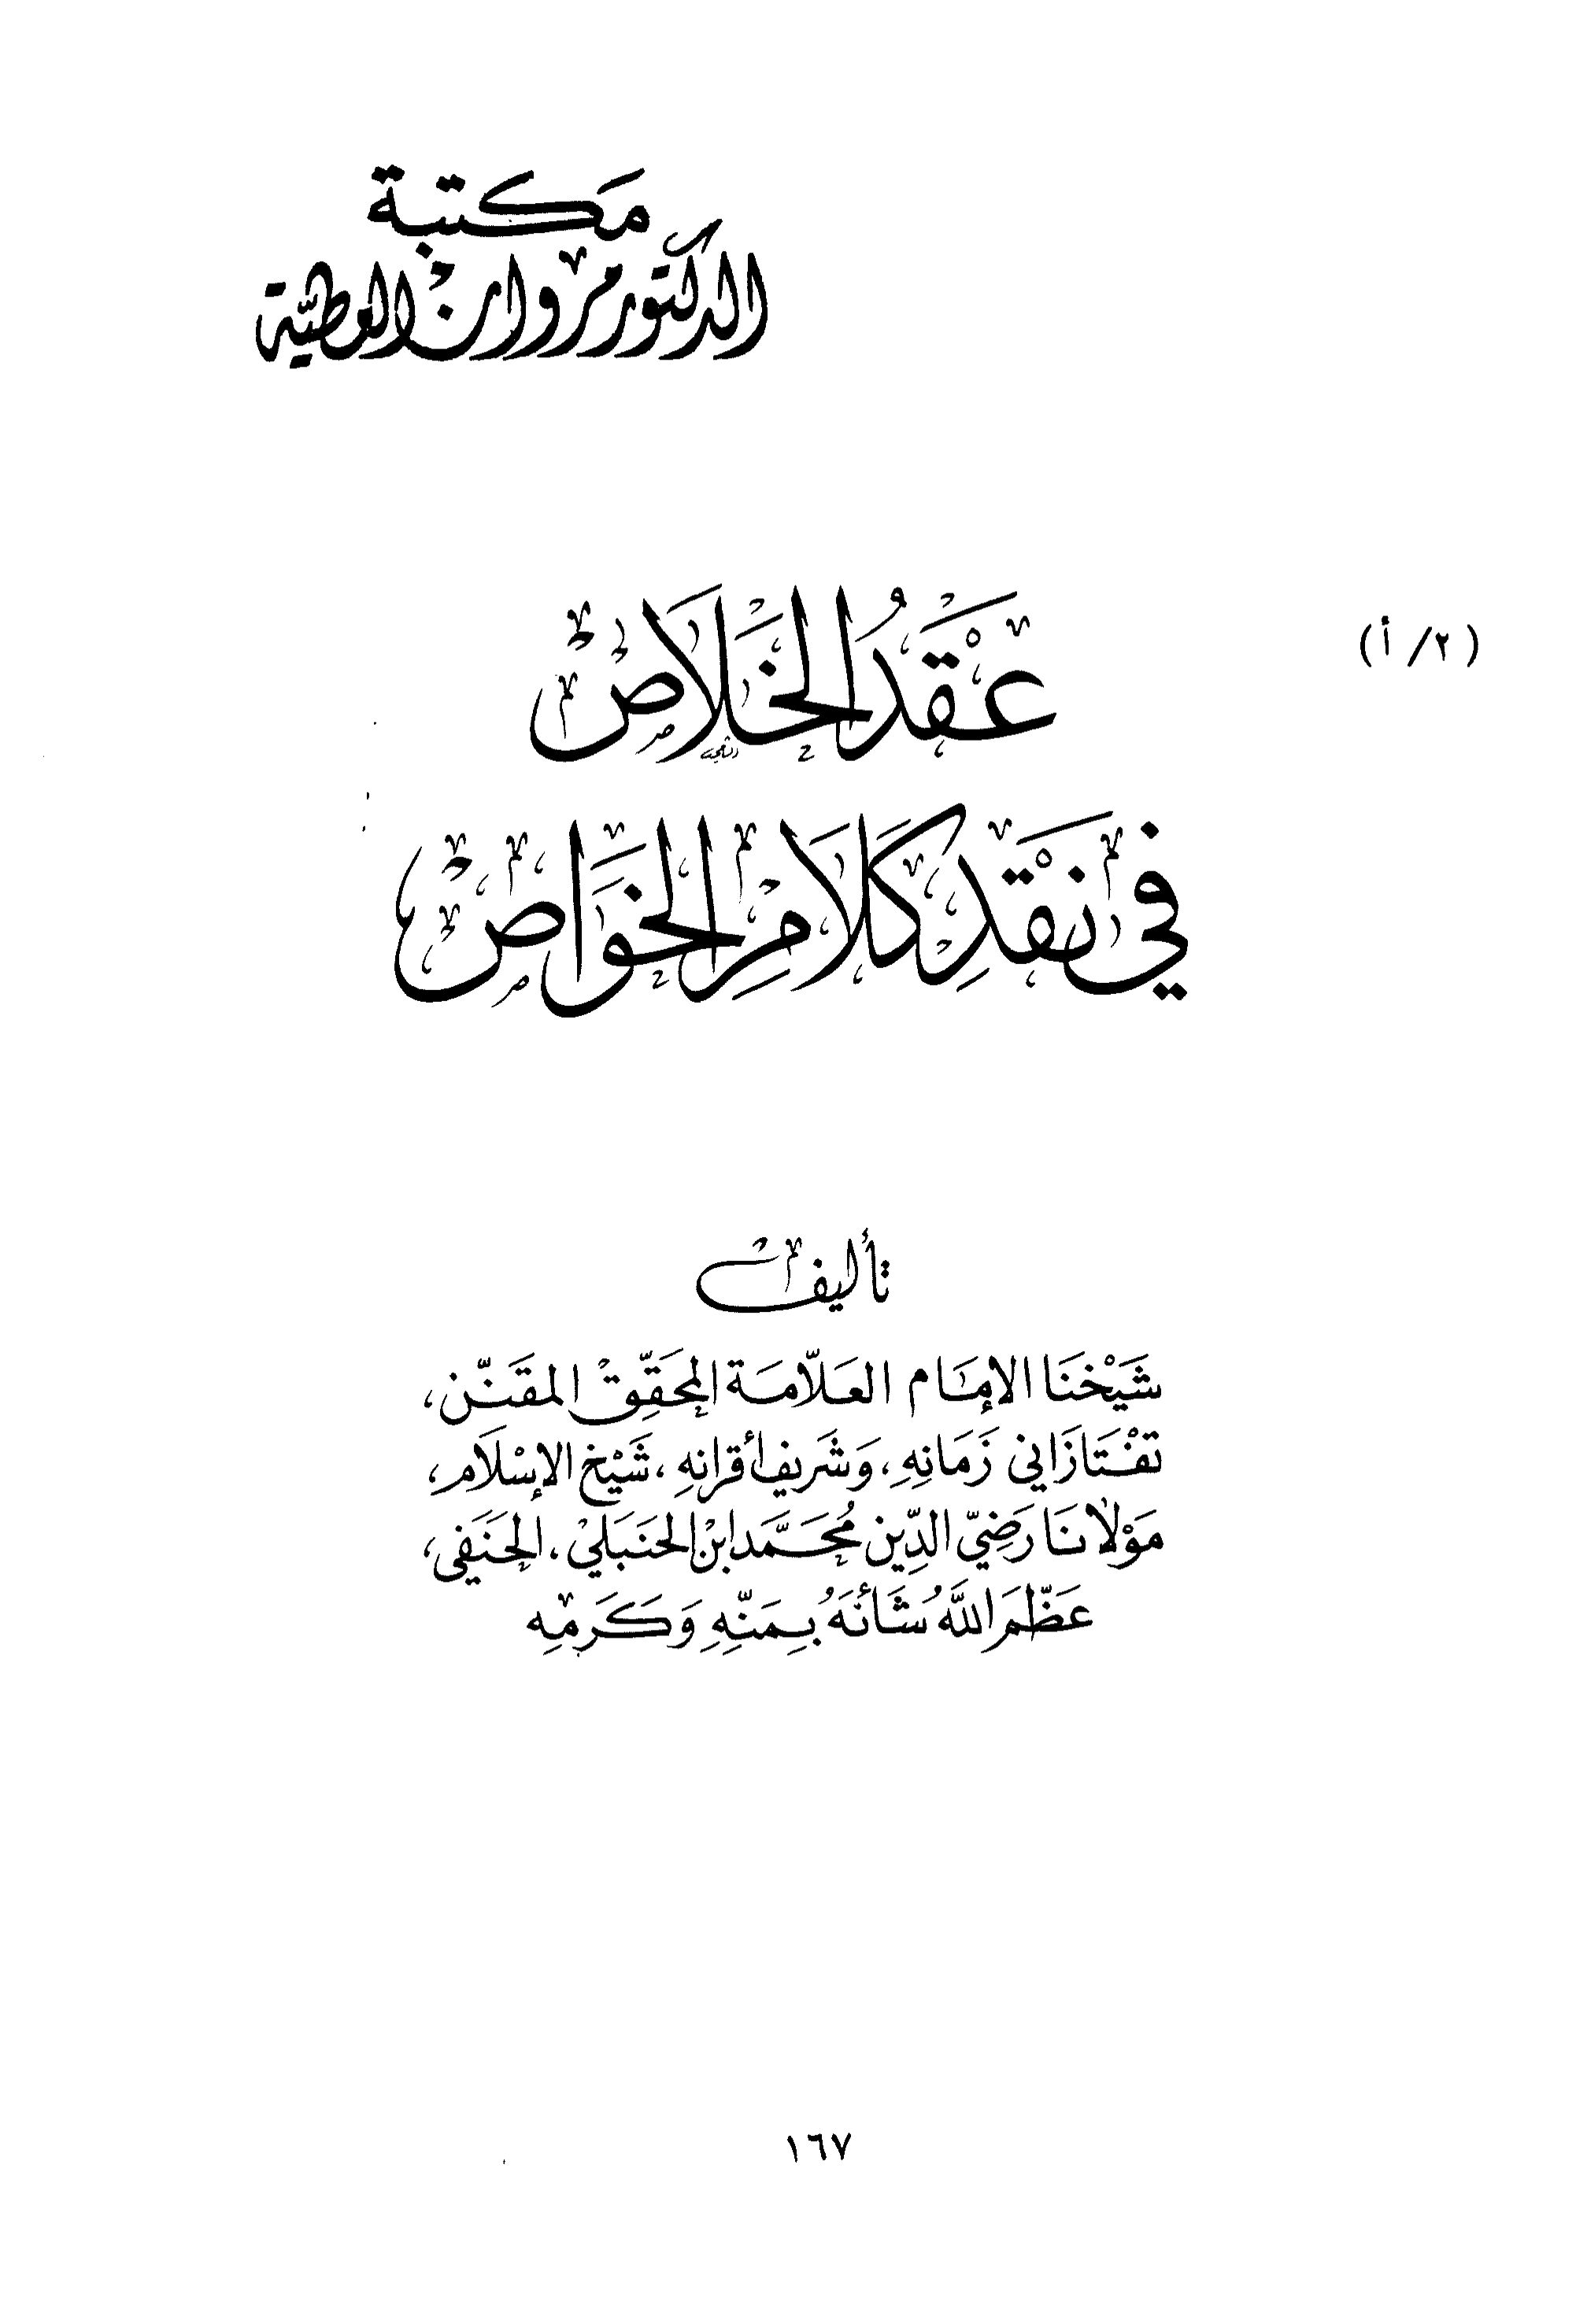 مَكتبة
الدكتور مروان العطيّة
(٢/ أ)
عَقْدُ الخَلَاصْ
في نَقْدِ كَلَامِ الخَوَاصْ
تأليف
شَيْخنَا الإمَام العَلّامَة المحَقِّقْ المقَنّن،
تفْتَازَاني زَمَانِهِ، وَشَريف أقرانِهِ، شَيْخ الإسْلَام،
مَوْلَانَا رَضِيّ الدِّين مُحَمَّد ابْن الحنَبَليْ، الحَنَفي،
عَظّمَ اللَّهُ شَأنَهُ بِمَنّهِ وَكَرَمِهِ
١٦٧